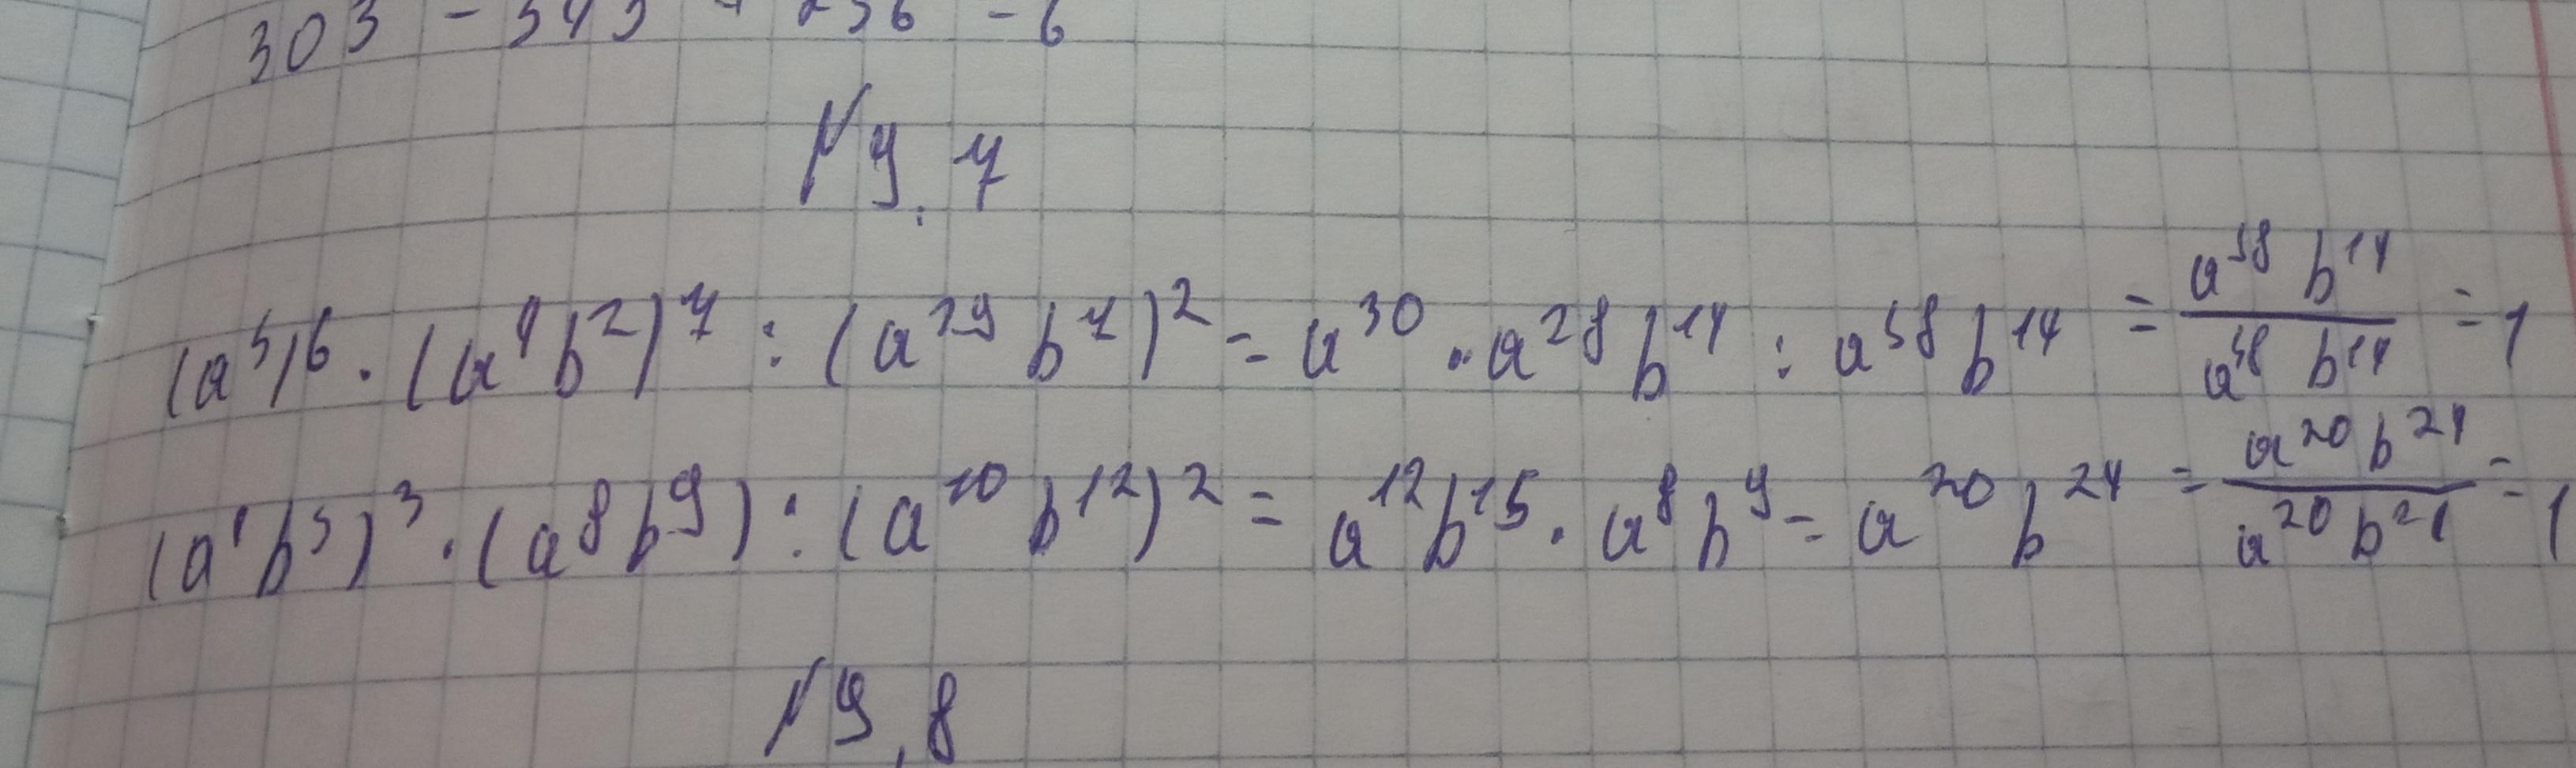 303 - 343 + 256 - 6
N 9.7
(a⁵)⁶ · (a⁴b²)⁷ : (a²⁹ b⁷)² = a³⁰ · a²⁸ b¹⁴ : a⁵⁸ b¹⁴ = a⁵⁸ b¹⁴ / a⁵⁸ b¹⁴ = 1
(a⁴b⁵)³ · (a⁸b⁹) : (a¹⁰ b¹²)² = a¹² b¹⁵ · a⁸ b⁹ = a²⁰ b²⁴ = a²⁰ b²⁴ / a²⁰ b²⁴ = 1
N 9.8